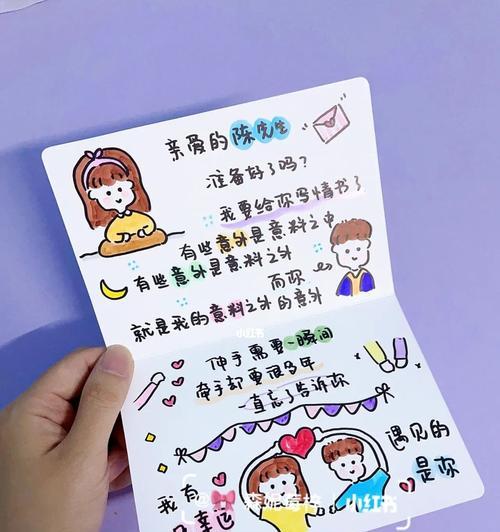 亲爱的陈先生
准备好了吗？
我要给你写情书了
有些意外是意料之中
有些意外是意料之外
而你
就是我的意料之外的意外
小红书
伸手需要一瞬间
牵手却要很多年
一直忘了告诉你
遇见的
是你
我有
幸运
小红书